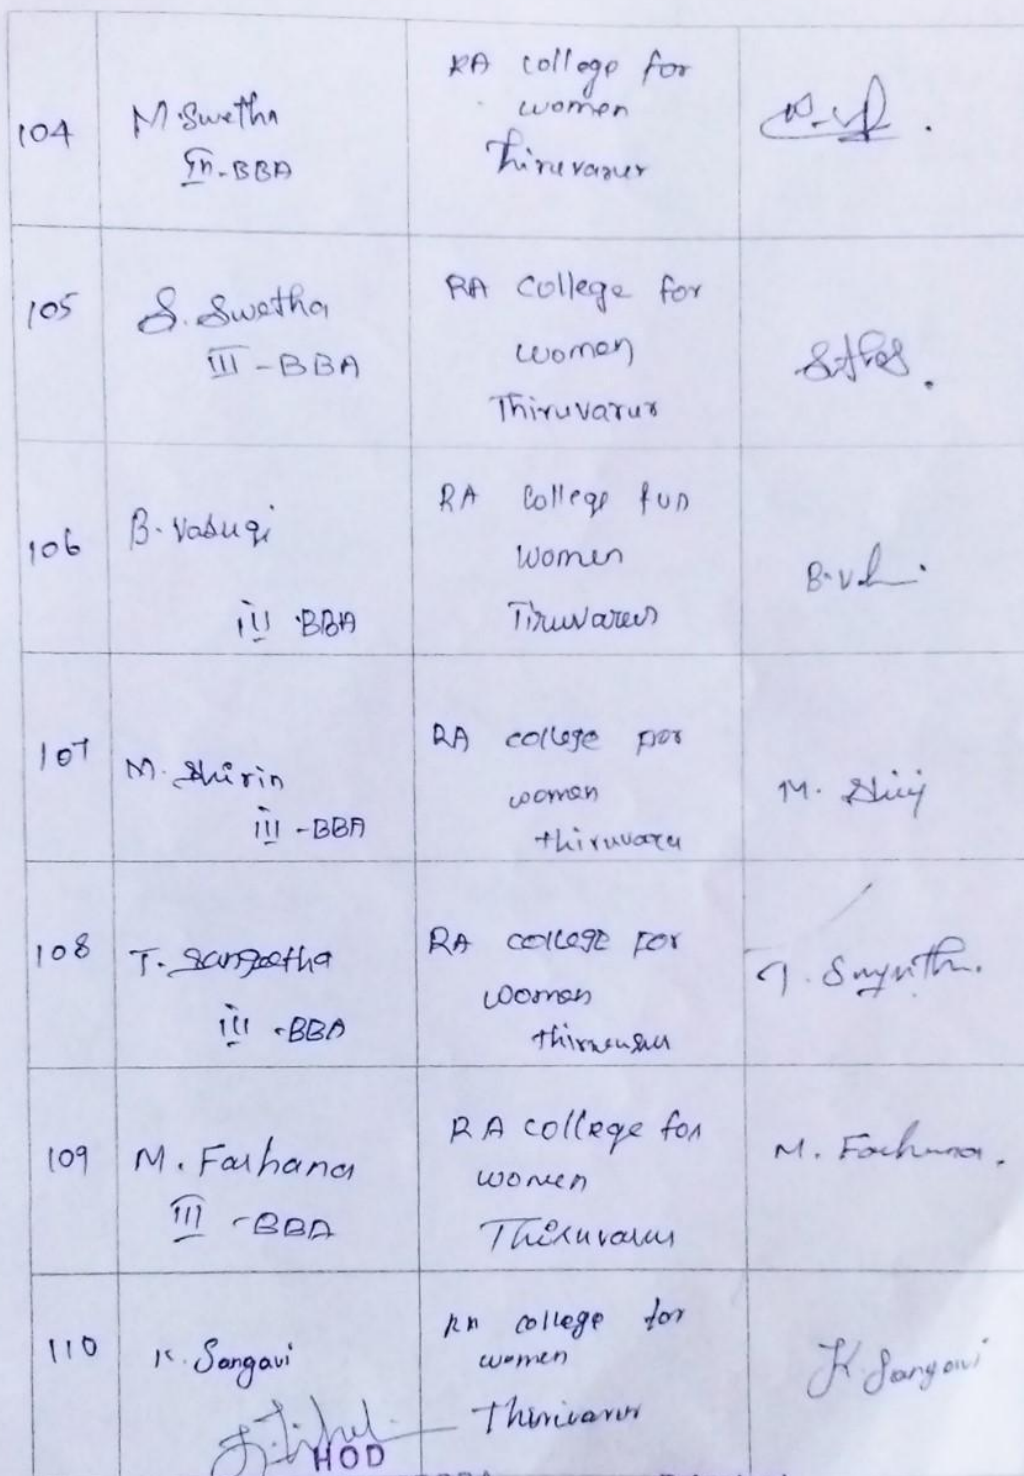 104
M. Swetha
III - BBA
RA college for
women
Thiruvarur
105
S. Swetha
III - BBA
RA college for
women
Thiruvarur
106
B. Vasugi
III BBA
RA College fun
women
Tiruvarur
B. V
107
M. Shirin
III - BBA
RA college for
women
thiruvaru
M.
108
T. Sangeetha
III - BBA
RA college for
women
T.
109
M. Farhana
III - BBA
RA college for
women
Thiruvarur
M. Farhana.
110
K. Sangavi
RA college for
women
K. Sangavi
HOD